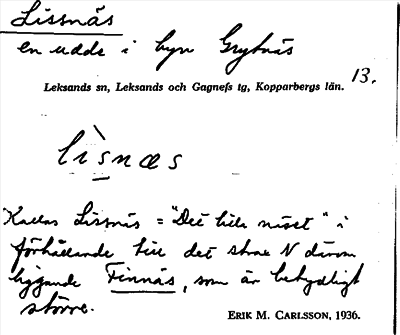 Lissnäs
en udde i byn Grytnäs
13.
Leksands sn, Leksands och Gagnefs tg, Kopparbergs län.
lìsnæs
Kallas Lissnäs = "Det lilla näset" i
förhållande till det strax N därom
liggande Finnäs, som är betydligt
större.
ERIK M. CARLSSON, 1936.